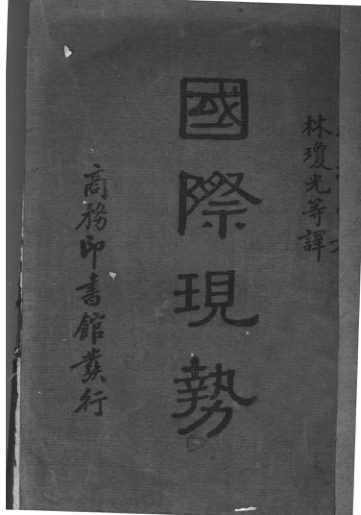 林瓊光等譯
國際現勢
商務印書館發行